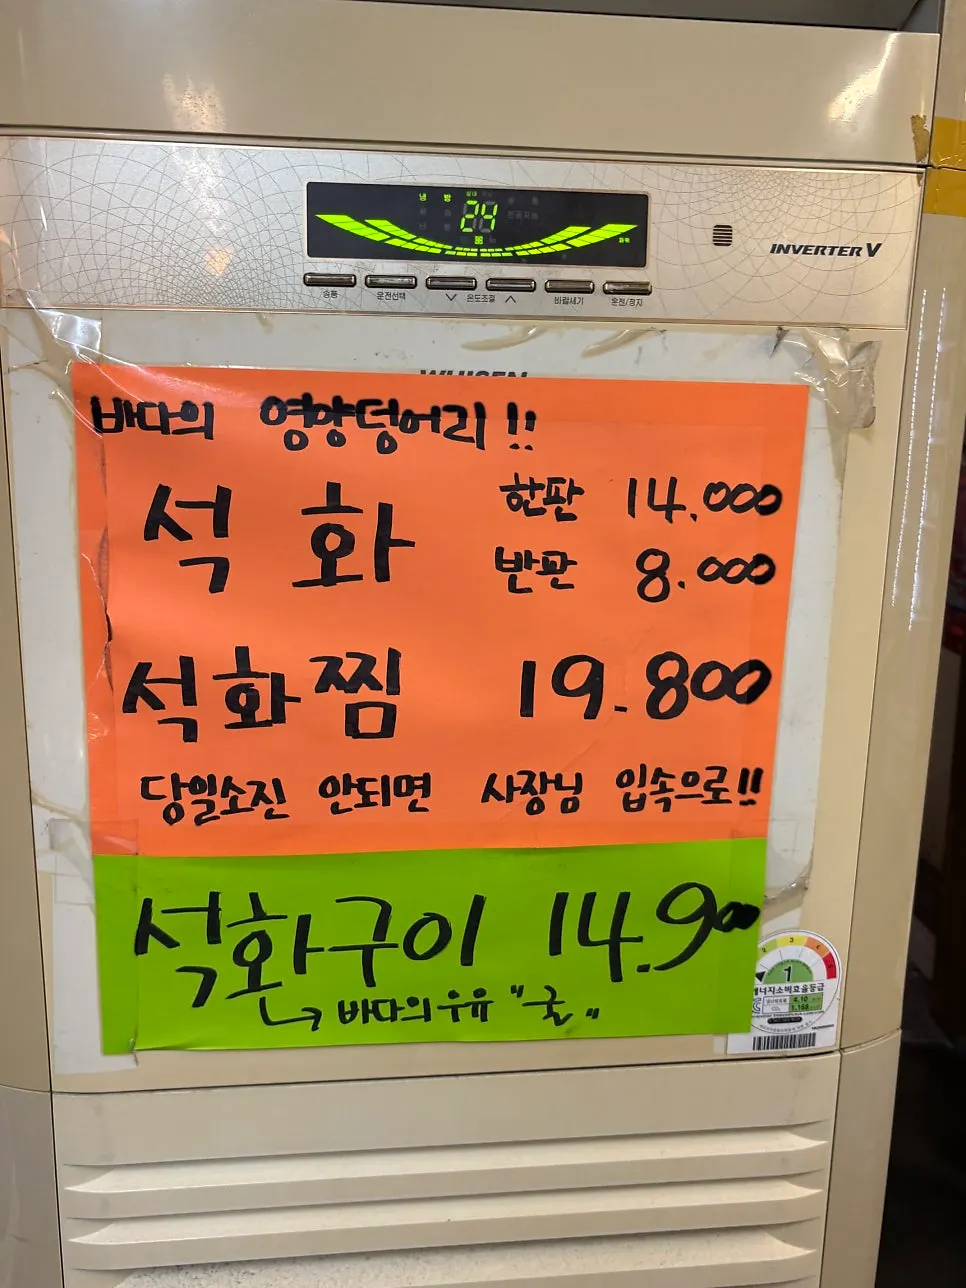 냉 방
24
파워
INVERTER V
송풍 운전선택 ∨ 온도조절 ∧ 바람세기 운전/정지
WHISEN
바다의 영양덩어리!!
석화 한판 14.000
반판 8.000
석화찜 19.800
당일소진 안되면 사장님 입속으로!!
석화구이 14.900
↳ 바다의 우유 "굴"
1
에너지소비효율등급